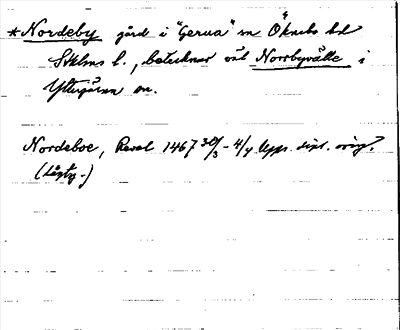 *Nordeby gård i "Gerua" sn Åkerbo hd
Sthlms l., betecknar väl Norrbyvälle i
Ytterjärna sn.
Nordeboe, Reval 1467 30/3 - 4/4 Upps. dipl. orig.